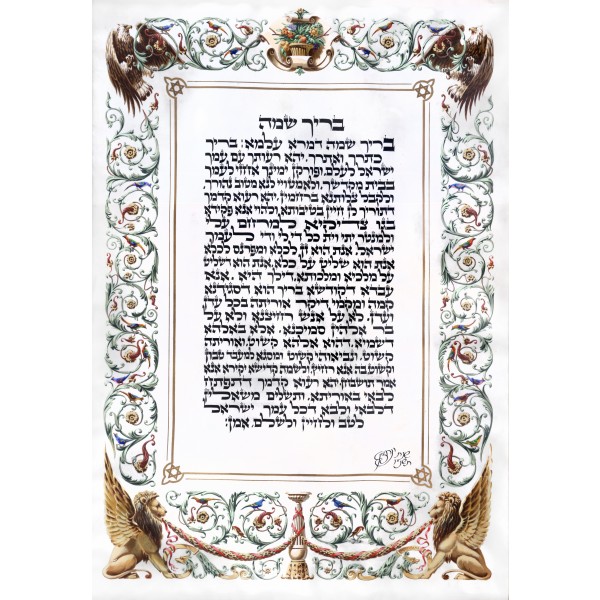 בריך שמה
בריך שמה דמרא עלמא: בריך
כתרך ואתרך. יהא רעותך עם עמך
ישראל לעלם. ופורקן ימינך אחזי לעמך
בבית מקדשך. ולאמטויי לנא מטוב נהורך.
ולקבל צלותנא ברחמין. יהא רעוא קדמך
דתוריך לן חיין בטיבותא. ולהוי אנא פקידא
בגו צדיקיא. למרחם עלי
ולמנטר יתי וית כל די לי ודי לעמך
ישראל. אנת הוא זן לכלא ומפרנס לכלא
אנת הוא שליט על כלא. אנת הוא דשליט
על מלכיא ומלכותא דילך היא. אנא
עבדא דקודשא בריך הוא דסגידנא
קמה ומקמי דיקר אוריתה בכל עדן
ועדן. לא על אנש רחיצנא ולא על
בר אלהין סמיכנא. אלא באלהא
דשמיא. דהוא אלהא קשוט. ואוריתה
קשוט. ונביאוהי קשוט ומסגא למעבד טבון
וקשוט בה אנא רחיץ. ולשמה קדישא יקירא אנא
אמר תושבחן. יהא רעוא קדמך דתפתח
לבאי באוריתא. ותשלים משאלין
דלבאי ולבא דכל עמך ישראל
לטב ולחיין ולשלם. אמן: